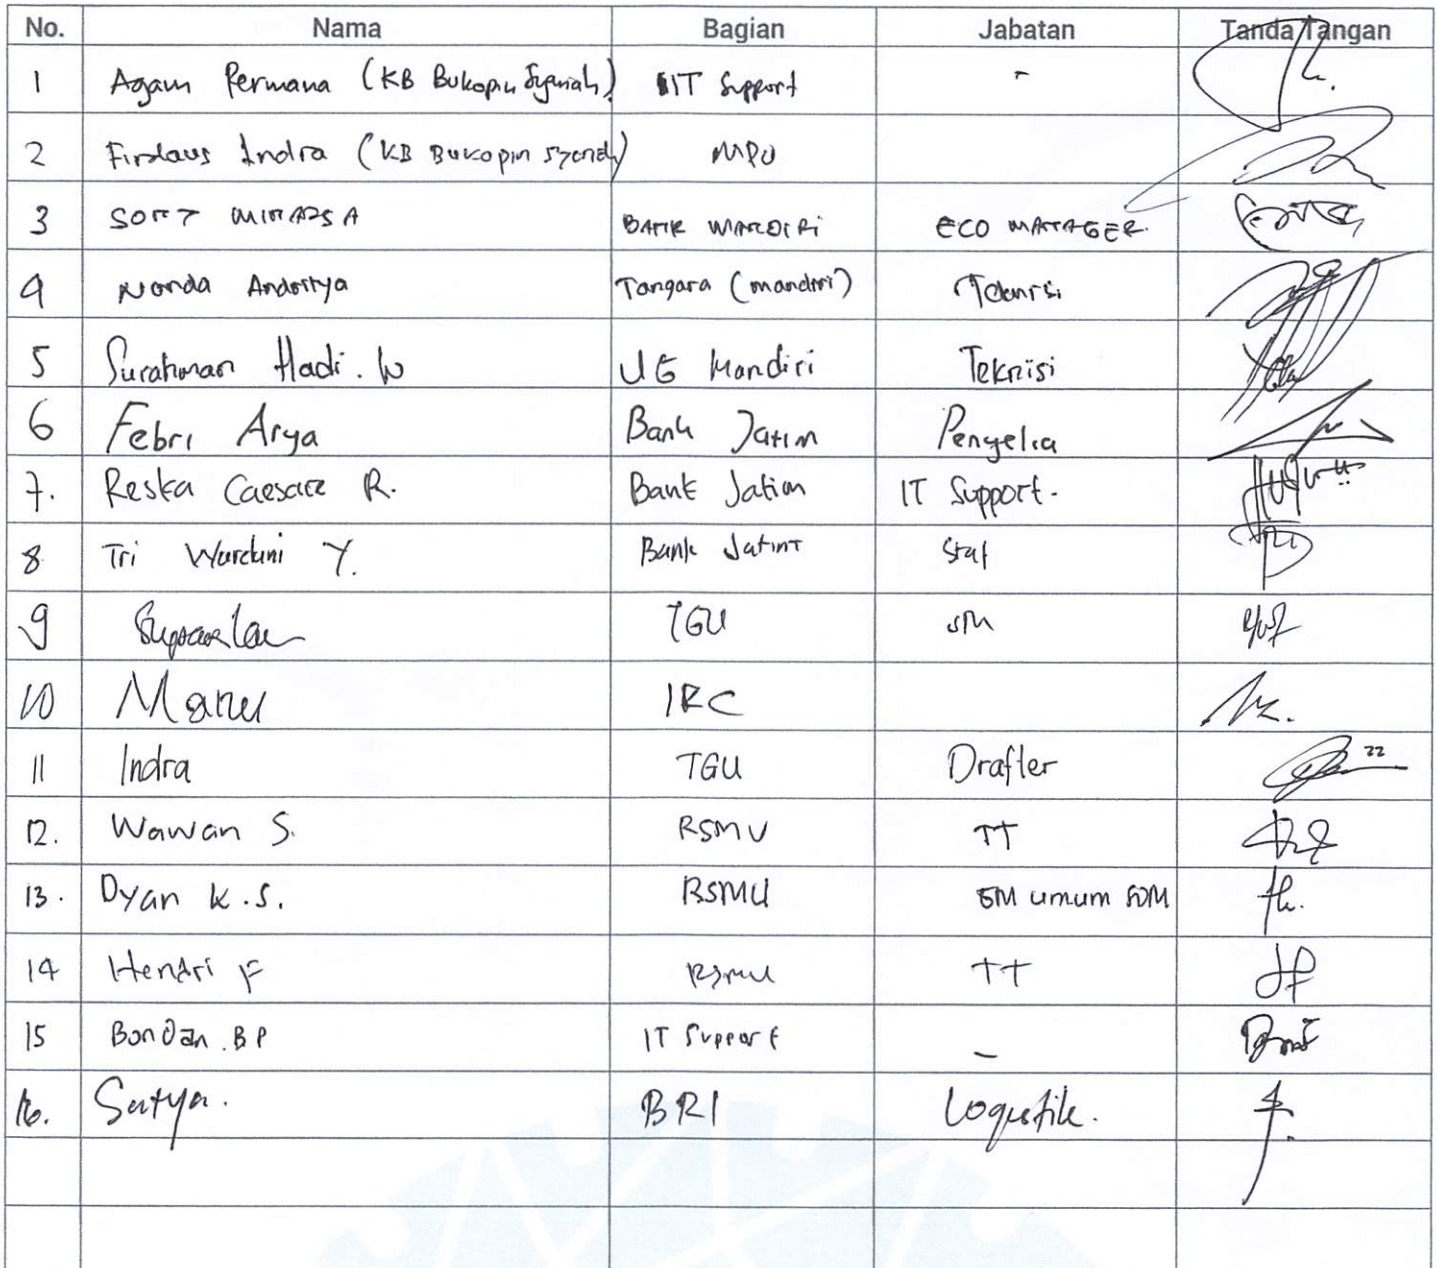 No. Nama Bagian Jabatan Tanda Tangan
1 Agam Permana (KB Bukopin Syariah) IT Support -
2 Firdaus Indra (KB Bukopin Syariah)
3 BANK MANDIRI ECO MANAGER.
4 Nanda Tangara (mandiri) Teknisi
5 Surahman Hadi. W UG Mandiri Teknisi
6 Febri Arya Bank Jatim Penyelia
7. Reska Caesare R. Bank Jatim IT Support.
8. Tri Wardani Y. Bank Jatim Staf
9 TGU SM
10 IRC
11 Indra TGU Drafter
12. Wawan S. RSMU TT
13. Dyan K.S. RSMU SM umum SDM
14 Hendri F RSMU TT
15 Bondan.BP IT Support -
16. Satya. BRI Logistik.